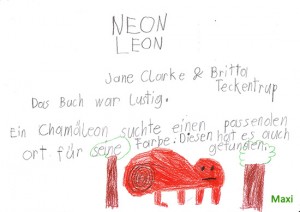 NEON
LEON
Jane Clarke & Britta
Teckentrup
Das Buch war Lustig.
Ein Chamäleon suchte einen passenden
ort für seine Farbe. Diesen hat es auch
gefunden.
Maxi